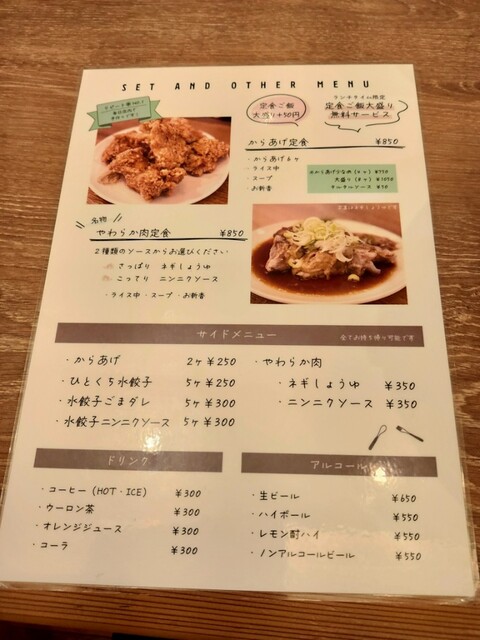 SET AND OTHER MENU
リピート率 No.1
定食ご飯
大盛り+50円
ランチタイム限定
定食ご飯大盛り
無料サービス
からあげ定食 ¥850
・からあげ6ケ
・ライス中
・スープ
・お新香
大盛り(8ケ) ¥1050
タルタルソース ¥50
名物
やわらか肉定食 ¥850
2種類のソースからお選びください
さっぱり ネギしょうゆ
こってり ニンニクソース
・ライス中・スープ・お新香
サイドメニュー 全てお持ち帰り可能です
・からあげ 2ケ ¥250
・ひとくち水餃子 5ケ ¥250
・水餃子ごまダレ 5ケ ¥300
・水餃子ニンニクソース 5ケ ¥300
・やわらか肉
・ネギしょうゆ ¥350
・ニンニクソース ¥350
ドリンク
・コーヒー(HOT・ICE) ¥300
・ウーロン茶 ¥300
・オレンジジュース ¥300
・コーラ ¥300
アルコール
・生ビール ¥650
・ハイボール ¥550
・レモン酎ハイ ¥550
・ノンアルコールビール ¥550